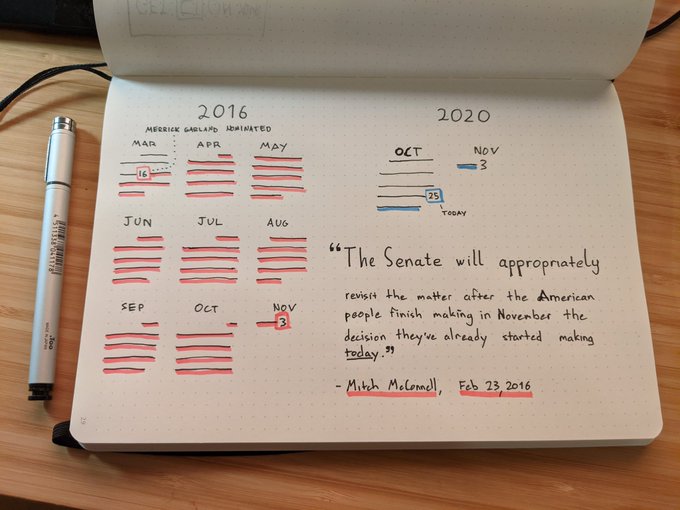 2016
MERRICK GARLAND NOMINATED
MAR APR MAY
16
JUN JUL AUG
SEP OCT NOV
3
2020
OCT NOV
3
25
TODAY
"The Senate will appropriately
revisit the matter after the American
people finish making in November the
decision they've already started making
today."
- Mitch McConnell, Feb 23, 2016
29
.Too